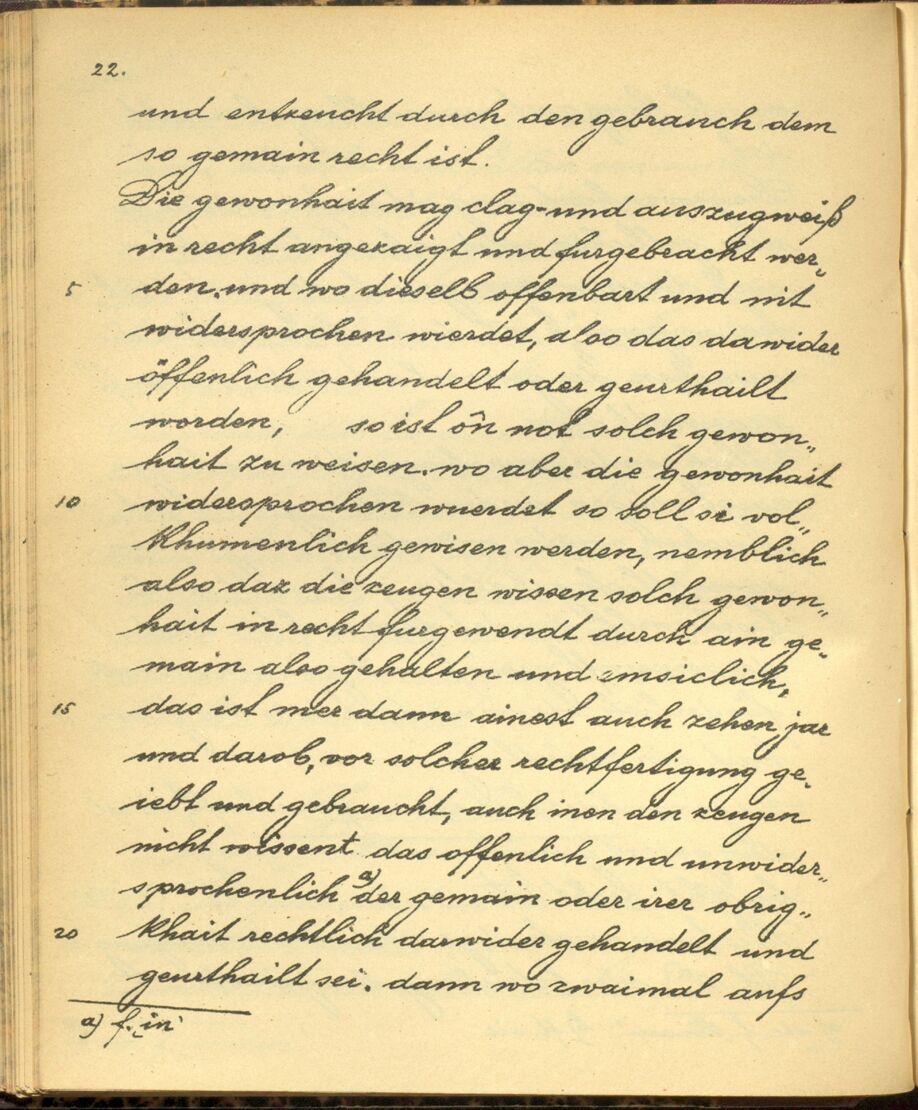 22.
und entzeucht durch den gebrauch dem
so gemain recht ist.
Die gewonhait mag clag- und auszugweiß
in recht angezaigt und furgebracht wer„
5 den. und wo dieselb offenbart und nit
widersprochen wierdet, also das dawider
öffenlich gehandelt oder geurthailt
worden, so ist ôn not solch gewon„
hait zu weisen. wo aber die gewonhait
10 widersprochen wuerdet so soll si vol„
khumenlich gewisen werden, nemblich
also daz die zeugen wissen solch gewon„
hait in recht furgewendt durch ain ge„
main also gehalten und emsiclich,
15 das ist mer dann ainest auch zehen jar
und darob, vor solcher rechtfertigung ge„
iebt und gebraucht, auch inen den zeugen
nicht wissent das offenlich und unwider„
sprochenlich a) der gemain oder irer obrig„
20 khait rechtlich darwider gehandelt und
geurthailt sei. dann wo zwaimal aufs
a) f. 'in'